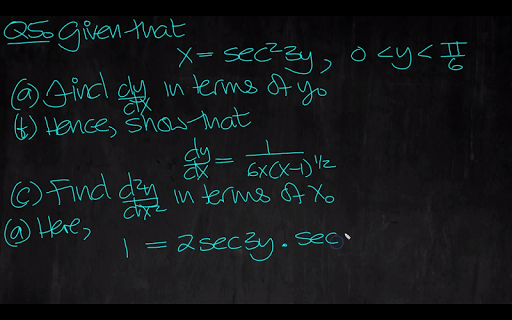 Q5. Given that
x = sec²3y, 0 < y < π/6
(a) Find dy/dx in terms of y.
(b) Hence, show that
dy/dx = 1/6x(x-1)^1/2
(c) Find d²y/dx² in terms of x.
(a) Here,
1 = 2sec3y . sec